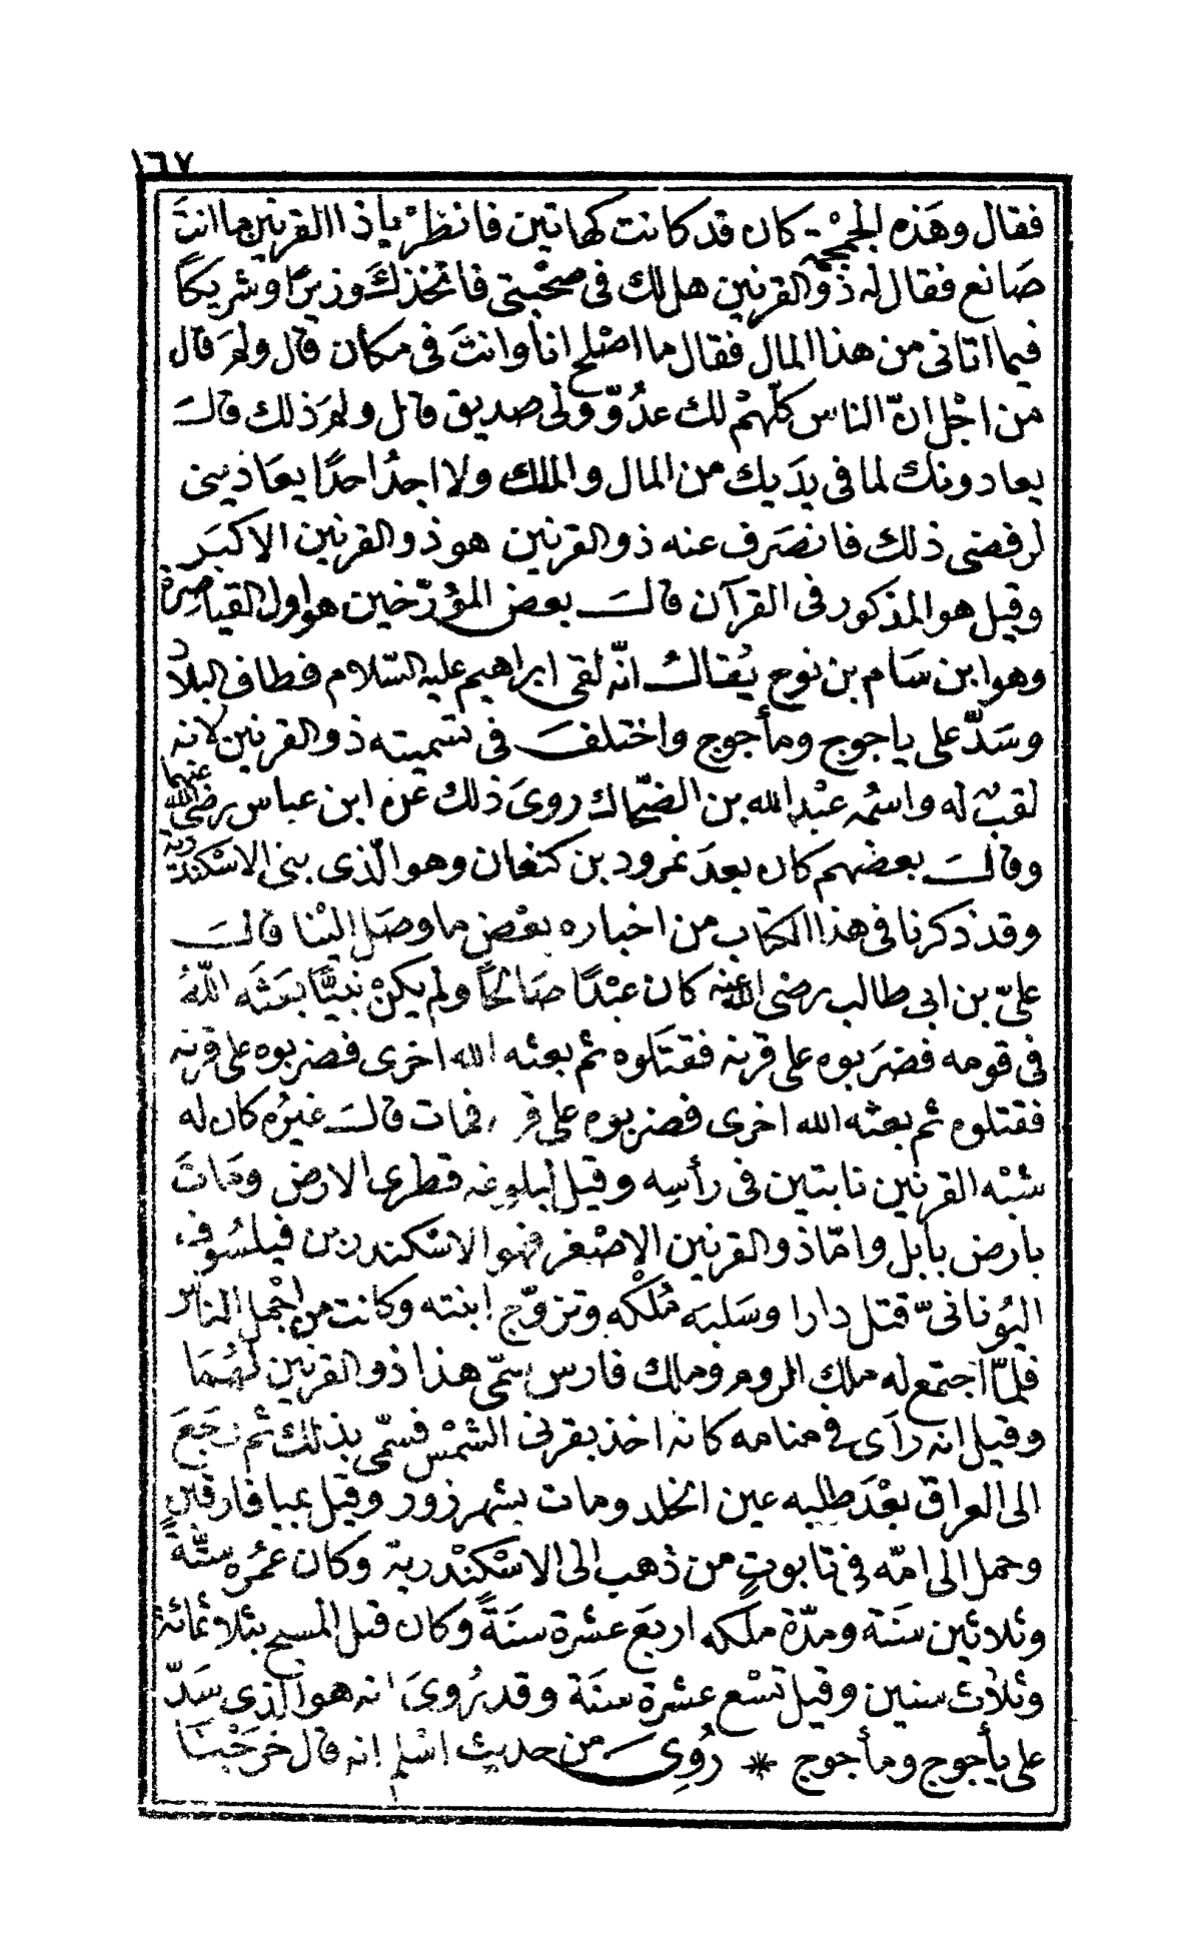 ١٦٧
فقال وهذه الجمجمة كان قد كانت كهاتين فانظرْ ياذا القرنين ما انتَ
صَانع فقال له ذو القرنين هل لك فى صحْبتى فاتخذكَ وزيرًا وشريكاً
فيما اتانى من هذا المال فقال ما اصْلح انا وانتَ فى مكان قال ولمَ قال
من اجْل انّ الناس كلّهمْ لك عدُوّ ولى صديق قال ولمَ ذلك قالَ
يعادونك لما فى يدَيك من المال والملك ولا اجدُ احدًا يعَادينى
لرفضى ذلك فانصَرف عنه ذو القرنين هو ذو القرنين الاكبَر
وقيل هو المذكور فى القرآن قالَ بعض المؤرّخين هو اول القياصِرة
وهو ابن سَام بن نوح يُقالُ انّه لقى ابراهيم عليه السّلام فطاف البلاد
وسَدّ على ياجوج ومأجوج واختلفَ فى تسميته ذو القرنين لانه
لقبٌ له واسمُه عبْد الله بن الضحّاك روىَ ذلك عن ابن عباس رضى الله عنهما
وقالَ بعضهم كان بعدَ نمرود بن كنعان وهو الّذى بنى الاسْكندرية
وقد ذكرنا فى هذا الكتاب من اخباره بعْض ما وصَل اليْنا قالَ
علىّ بن ابى طالب رضى الله عنه كان عبْدًا صَالحًا ولم يكنْ نبيًّا بعَثَه اللّهُ
فى قومه فضَربوه على قرنه فقتَلوه ثم بعثه الله اخرى فضربوه على قرنه
فقتلوه ثم بعثه الله اخرى فضربوه على فمات قالَ غيرُه كان له
شبْه القرنين نابتين فى رأسِه وقيل لبلوغه قطرى الارض ومَاتَ
بارض بابل وامّا ذو القرنين الاصْغر فهو الاسْكندر بن فيلسُوف
اليُونانىّ قتل دارا وسَلبَه مُلْكه وتزوّج ابنته وكانت من اجْمل الناس
فلمّا اجتمع له ملك الروم وملك فارس سمّى هذا ذو القرنين لهُمَا
وقيل انه رَأى فى منامه كانه اخذ بقرنى الشمْس فسمّى بذلك ثم رَجَعَ
الى العراق بعْدَ طلبه عين الخلد ومات بشهرزور وقيل بميافارقين
وحمل الى امّه فى تابوتٍ من ذهب الى الاسْكنْدرية وكان عمُره ستّةً
وثلاثين سَنَة ومدّة ملكه اربَع عشرة سنَةً وكان قبل المسيح بثلاثمائة
وثلاث سنين وقيل تسْع عشرة سنَة وقد رُوىَ انه هو الذى سَدّ
على يأجوج ومأجوج * رُوِىَ من حديث اسْلم انه قال خرَجْنَا